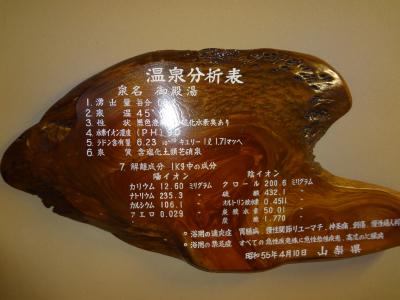 温泉分析表
泉名 御殿湯
1. 湧出量 毎分
2. 泉温 45°
3. 性状 無色澄 硫化水素臭あり
4. 水素イオン濃度 (PH) 9.0
5. ラドン含有量 6.23 キューリー1ℓ 1.71マッヘ
6. 泉質 含塩化土類芒硝泉
7. 解離成分 1Kg中の成分
陽イオン 陰イオン
カリウム 12.60 ミリグラム クロール 200.6 ミリグラム
ナトリウム 235.3 硫酸 432.1
カルシウム 106.1 0.4511
アエロ 0.029 炭酸水素 50.01
炭酸 1.770
○ 浴用の適応症 胃腸病 慢性関節リューマチ、神経痛、創傷、慢性婦人科
○ 浴用の禁忌症 すべての急性疾患殊に急性熱性疾患、高度の心臓病
昭和55年4月10日 山梨県